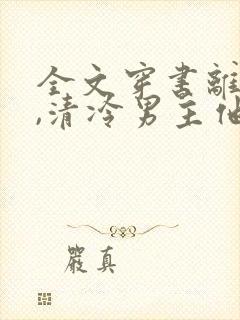 全文穿书離
,清冷男主他
嚴真